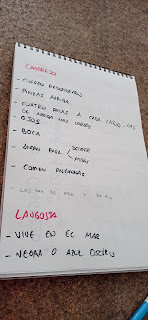 CANGREJO
- CUERPO REDONDEADO
- PINZAS ARRIBA
- CUATRO PATAS A CADA LADO - LAS
DE ARRIBA MÁS LARGAS
- OJOS
- BOCA
- PARA
- COMEN
- LOS HAY DE MAR Y DE RÍO
LANGOSTA
- VIVE EN EL MAR
- NEGRA O AZUL OSCURO